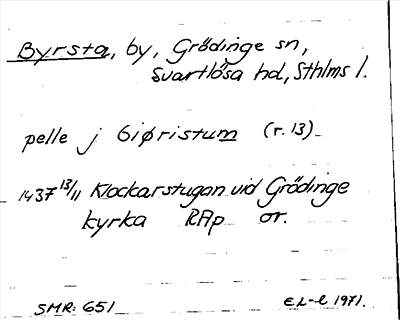 Byrsta, by, Grödinge sn,
Svartlösa hd, Sthlms l.
pelle j biøristum (r. 13)
1437 13/11 Klockarstugan vid Grödinge
kyrka RAp or.
SMR: 651 EL-l 1971.